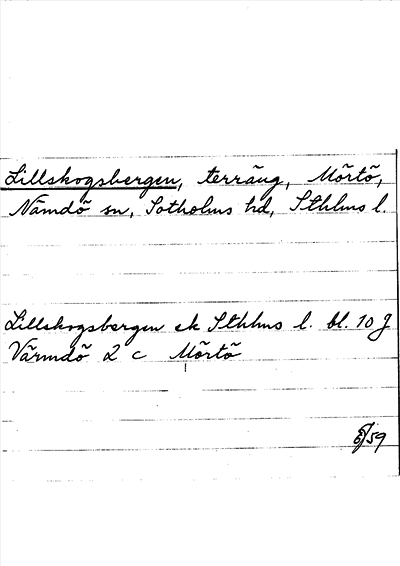 Lillskogsbergen, terräng, Mörtö,
Nämdö sn, Sotholms hd, Sthlms l.
Lillskogsbergen ek Sthlms l. bl. 10 J
Värmdö 2 c Mörtö
59